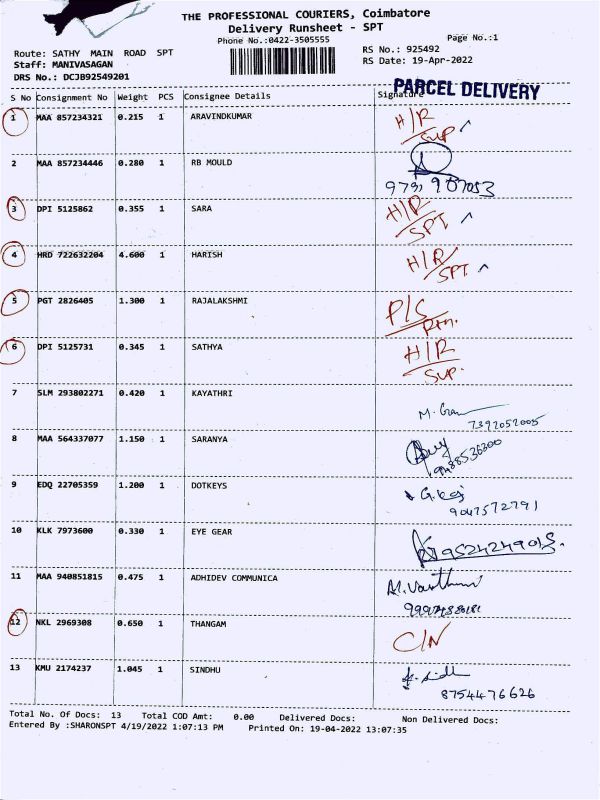 THE PROFESSIONAL COURIERS, Coimbatore
Delivery Runsheet - SPT
Phone No.:0422-3505555
Page No.:1
Route: SATHY MAIN ROAD SPT
RS No.: 925492
Staff: MANIVASAGAN
RS Date: 19-Apr-2022
DRS No.: DCJB92549201
PARCEL DELIVERY
S No Consignment No Weight PCS Consignee Details Signature
1 MAA 857234321 0.215 1 ARAVINDKUMAR H/R
SUP
2 MAA 857234446 0.280 1 RB MOULD
3 DPI 5125862 0.355 1 SARA H/R
SPT
4 HRD 722632204 4.600 1 HARISH H/R
SPT
5 PGT 2826405 1.300 1 RAJALAKSHMI P/S
6 DPI 5125731 0.345 1 SATHYA H/R
SUP.
7 SLM 293802271 0.420 1 KAYATHRI
7392052005
8 MAA 564337077 1.150 1 SARANYA
9488536300
9 EDQ 22705359 1.200 1 DOTKEYS
9047572791
10 KLK 7973600 0.330 1 EYE GEAR
11 MAA 940851815 0.475 1 ADHIDEV COMMUNICA
12 NKL 2969308 0.650 1 THANGAM C/N
13 KMU 2174237 1.045 1 SINDHU
8754476626
Total No. Of Docs: 13 Total COD Amt: 0.00 Delivered Docs: Non Delivered Docs:
Entered By :SHARONSPT 4/19/2022 1:07:13 PM Printed On: 19-04-2022 13:07:35